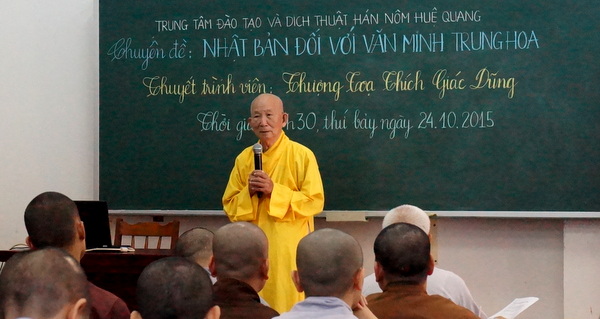 TRUNG TÂM ĐÀO TẠO VÀ DỊCH THUẬT HÁN NÔM HUỆ QUANG
Chuyên đề: NHẬT BẢN ĐỐI VỚI VĂN MINH TRUNG HOA
Thuyết trình viên: Thượng Tọa Thích Giác Dũng
Thời h30, thứ bảy ngày 24.10.2015